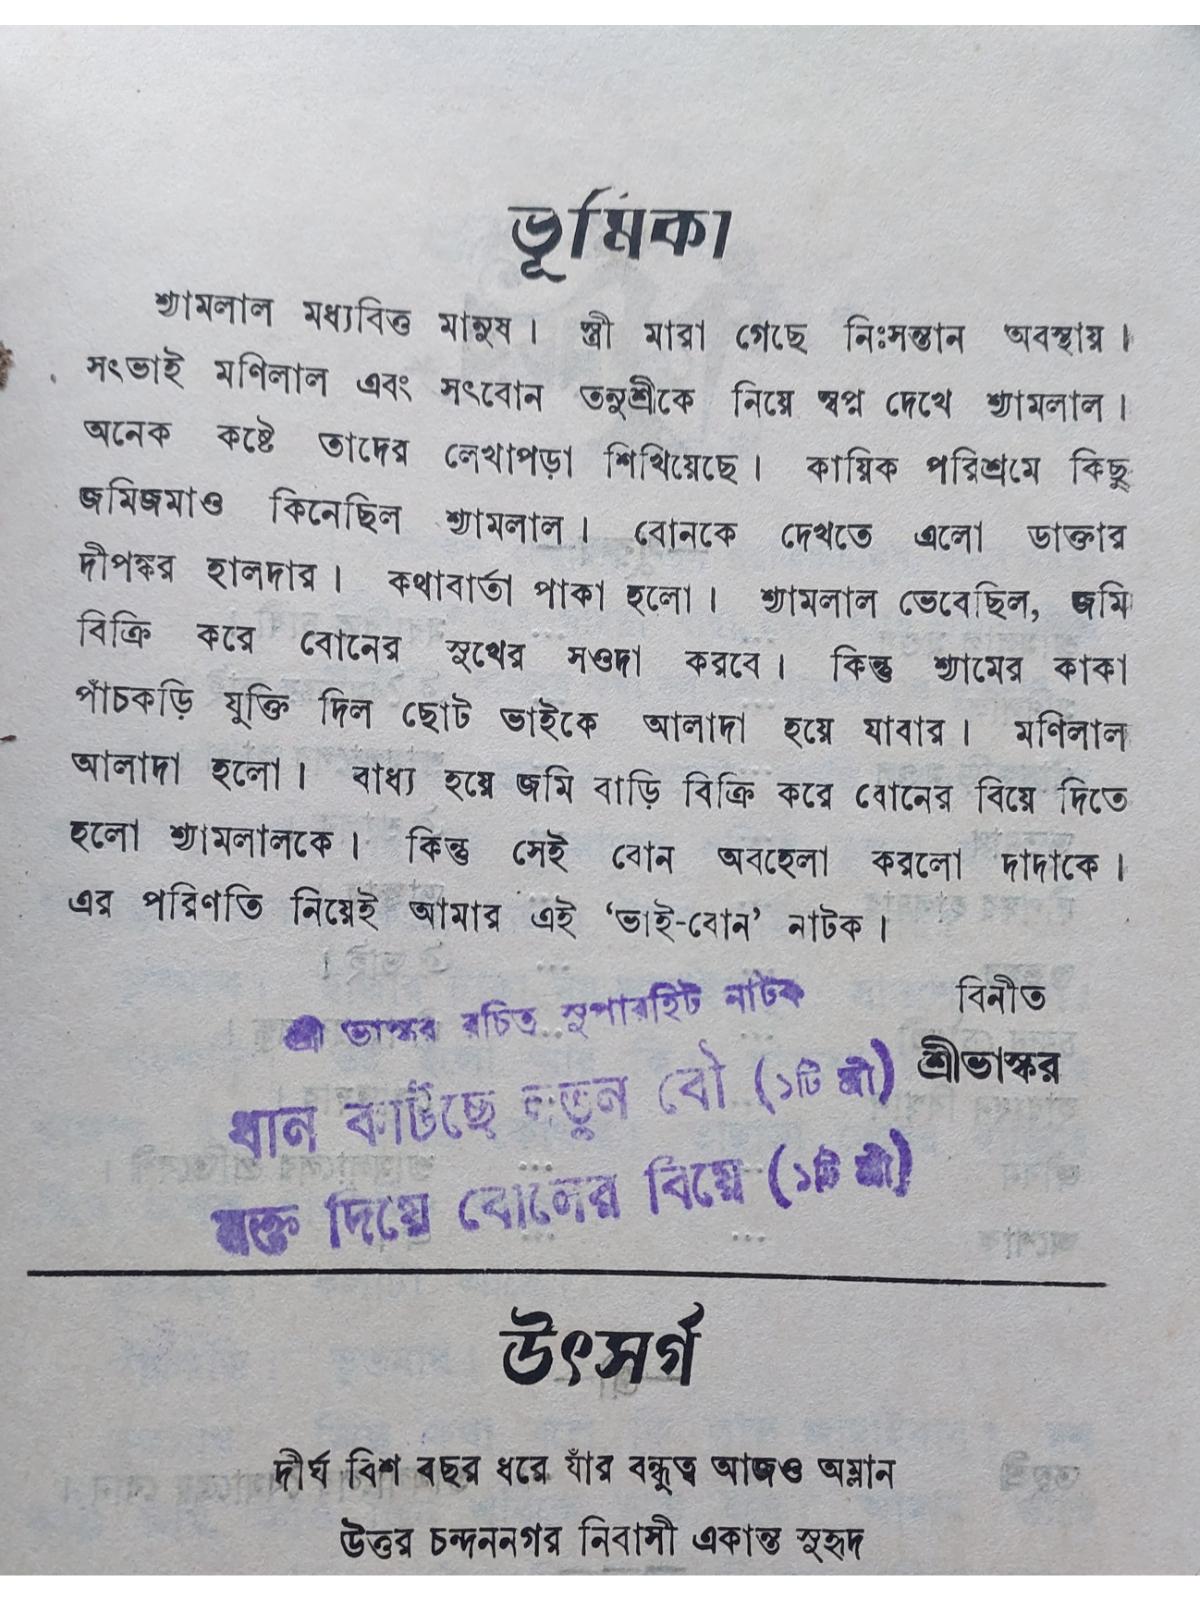 ভূমিকা
শ্যামলাল মধ্যবিত্ত মানুষ। স্ত্রী মারা গেছে নিঃসন্তান অবস্থায়।
সৎভাই মণিলাল এবং সৎবোন তনুশ্রীকে নিয়ে স্বপ্ন দেখে শ্যামলাল।
অনেক কষ্টে তাদের লেখাপড়া শিখিয়েছে। কায়িক পরিশ্রমে কিছু
জমিজমাও কিনেছিল শ্যামলাল। বোনকে দেখতে এলো ডাক্তার
দীপঙ্কর হালদার। কথাবার্তা পাকা হলো। শ্যামলাল ভেবেছিল, জমি
বিক্রি করে বোনের সুখের সওদা করবে। কিন্তু শ্যামের কাকা
পাঁচকড়ি যুক্তি দিল ছোট ভাইকে আলাদা হয়ে যাবার। মণিলাল
আলাদা হলো। বাধ্য হয়ে জমি বাড়ি বিক্রি করে বোনের বিয়ে দিতে
হলো শ্যামলালকে। কিন্তু সেই বোন অবহেলা করলো দাদাকে।
এর পরিণতি নিয়েই আমার এই ‘ভাই-বোন’ নাটক।
বিনীত
শ্রীভাস্কর
শ্রী ভাস্কর রচিত সুপারহিট নাটক
ধান কাটছে নতুন বৌ (১টি স্ত্রী)
রক্ত দিয়ে বোনের বিয়ে (১টি স্ত্রী)
উৎসর্গ
দীর্ঘ বিশ বছর ধরে যাঁর বন্ধুত্ব আজও অম্লান
উত্তর চন্দননগর নিবাসী একান্ত সুহৃদ